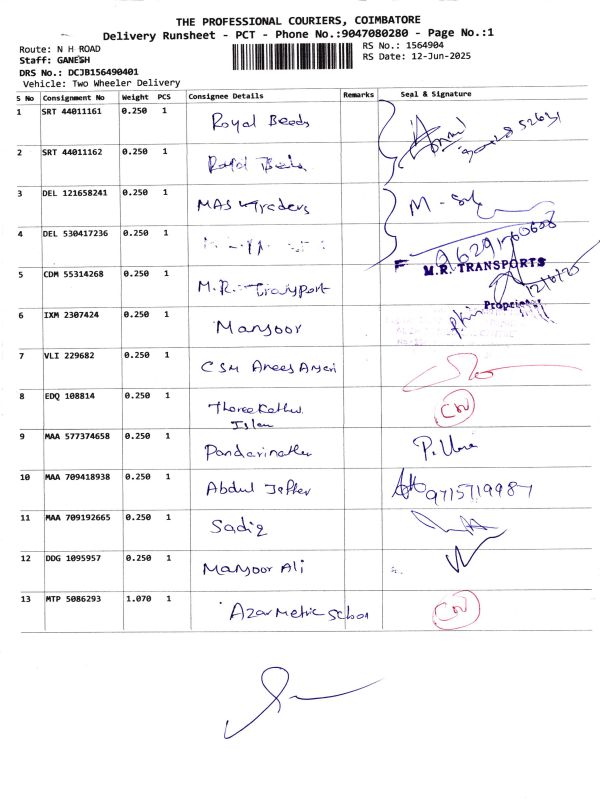 THE PROFESSIONAL COURIERS, COIMBATORE
Delivery Runsheet - PCT - Phone No.:9047080280 - Page No.:1
Route: N H ROAD
RS No.: 1564904
Staff: GANESH
RS Date: 12-Jun-2025
DRS No.: DCJB156490401
Vehicle: Two Wheeler Delivery
S No Consignment No Weight PCS Consignee Details Remarks Seal & Signature
1 SRT 44011161 0.250 1 Royal Beads
2 SRT 44011162 0.250 1 Royal Beads
3 DEL 121658241 0.250 1 MAS Traders M -
4 DEL 530417236 0.250 1
5 CDM 55314268 0.250 1 M.R. Transport M.R. TRANSPORTS
12/6/25
Proprietor
6 IXM 2307424 0.250 1 Mansoor
7 VLI 229682 0.250 1 CSM Anees Ansari
8 EDQ 108814 0.250 1 Thareekathu
Islam
9 MAA 577374658 0.250 1 Pandarinathan P. Uma
10 MAA 709418938 0.250 1 Abdul Jaffer 9715719987
11 MAA 709192665 0.250 1 Sadiq
12 DDG 1095957 0.250 1 Mansoor Ali
13 MTP 5086293 1.070 1 Azar Metric School